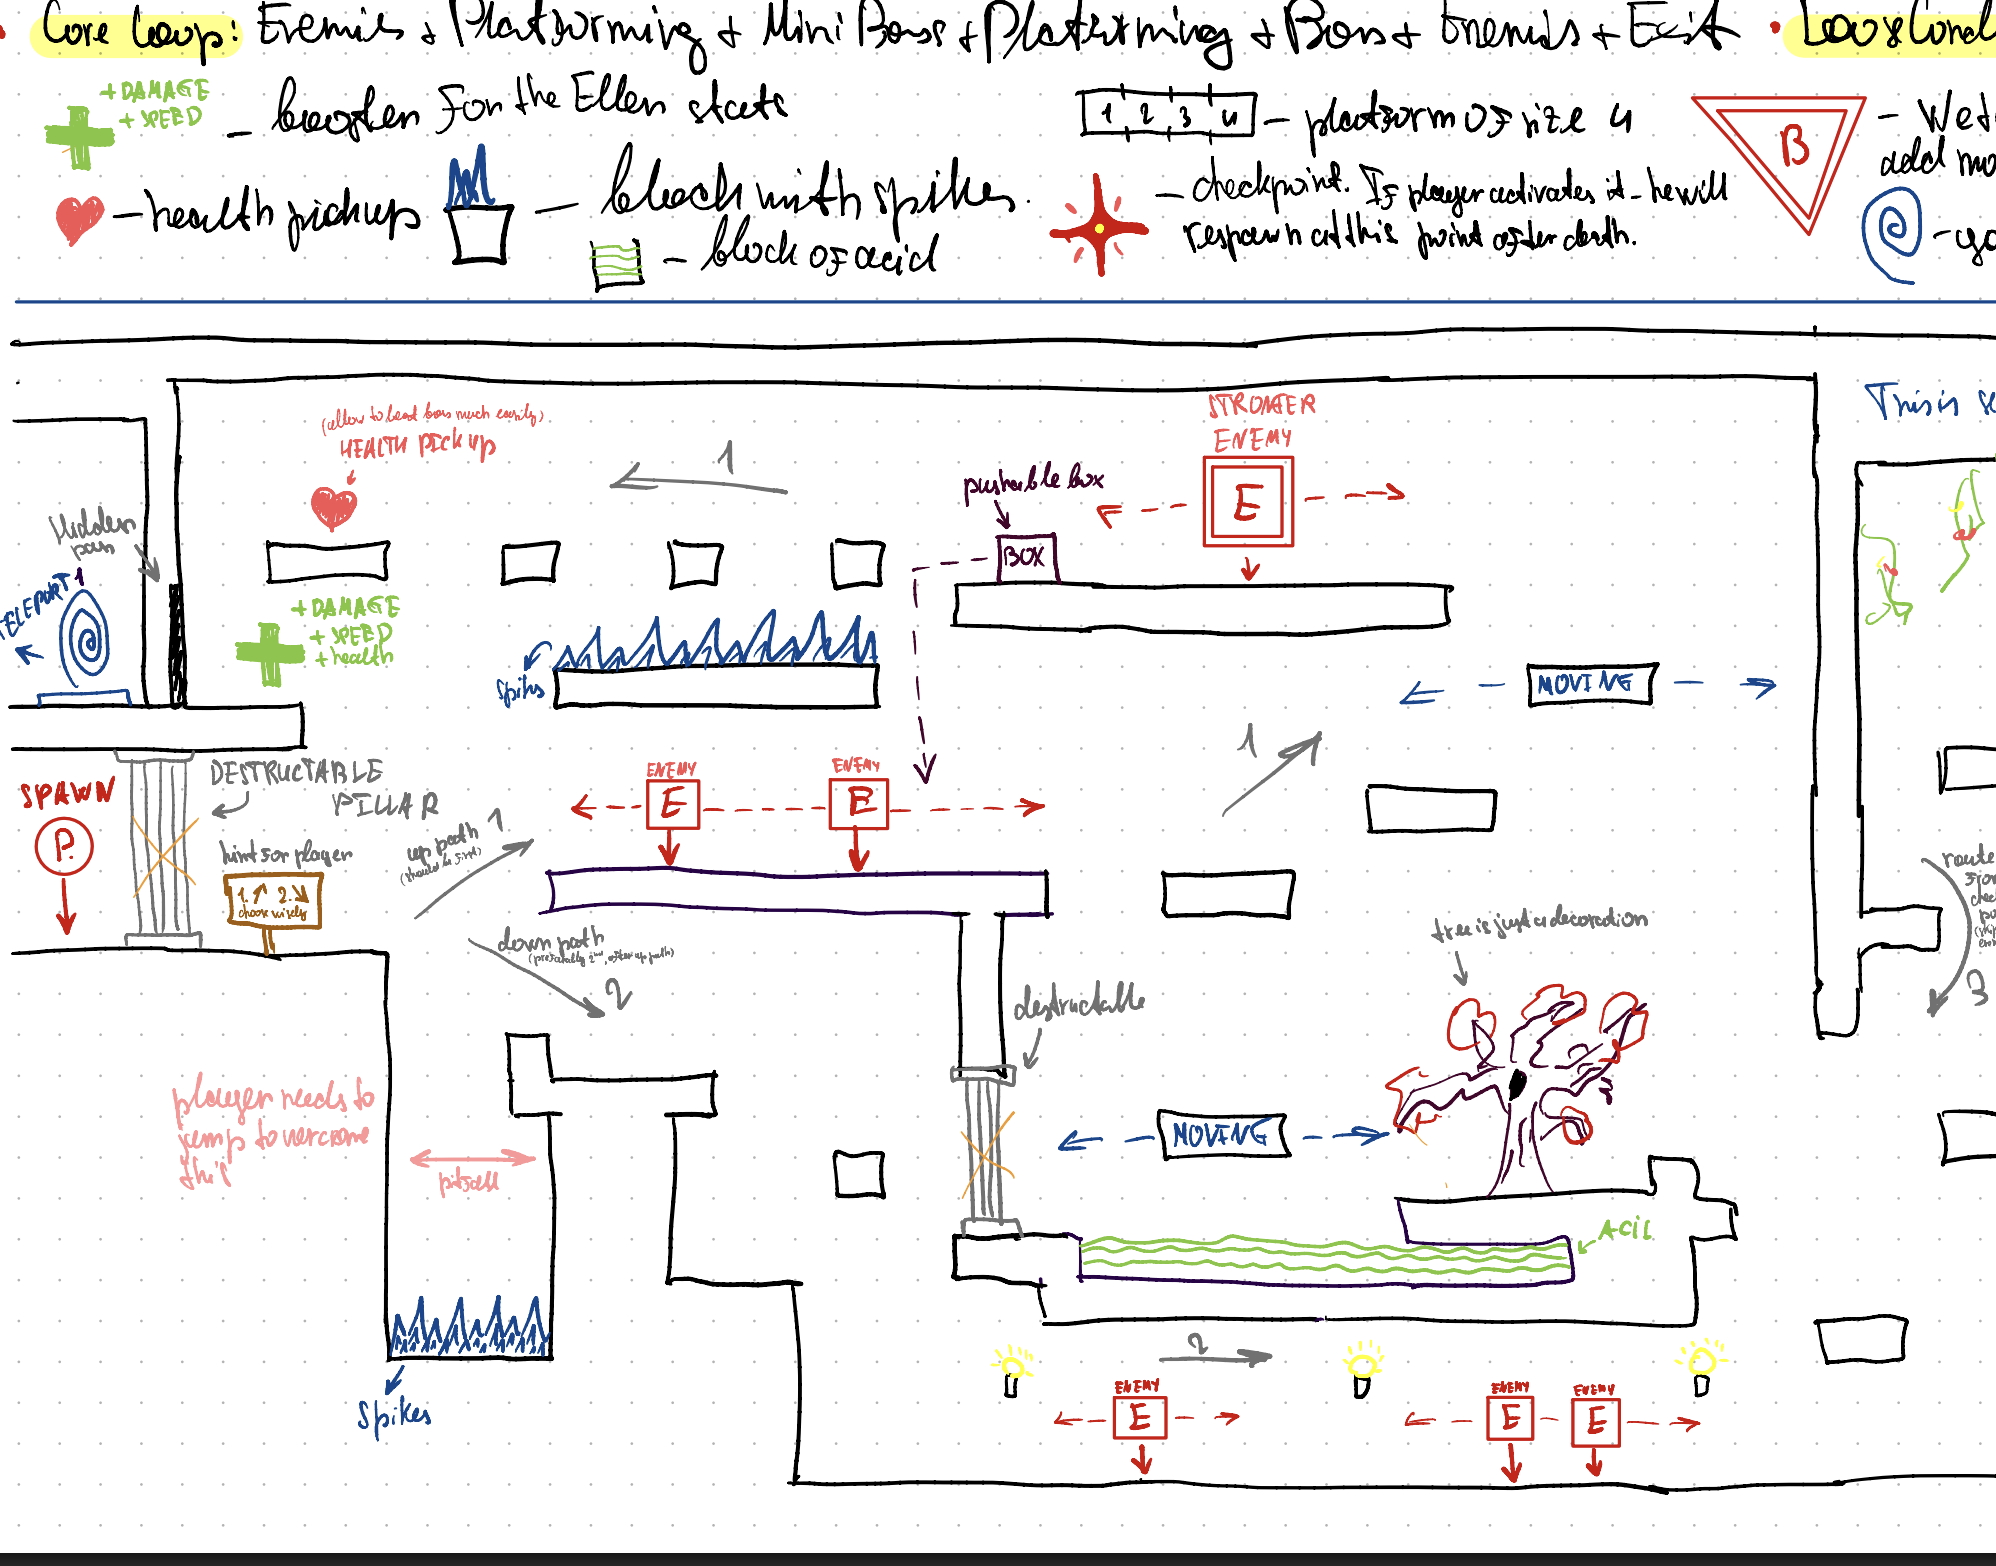 Core Loop: Enemies + Platforming + Mini Boss + Platforming + Boss + Enemies + Exit • Loose Cond
+ DAMAGE
+ SPEED
- booster For the Ellen stats
1 2 3 4 - platform of size 4
B
- We
add mo
- health pickup
- block with spikes.
- checkpoint. If player activates it - he will
respawn at this point after death.
- block of acid
This is se
(allow to beat boss much easily)
HEALTH PICK UP
1
STRONGER
ENEMY
E
pushable box
BOX
Hidden
pass
TELEPORT 1
+ DAMAGE
+ SPEED
+ health
Spikes
MOVING
1
SPAWN
P.
DESTRUCTABLE
PILLAR
ENEMY
E
ENEMY
E
hint for player
1. 2.
choose wisely
up path 1
(should be first)
down path
(preferably 2nd, after up path)
2
route
3
tree is just a decoration
destructable
player needs to
jump to overcome
this
pitfall
MOVING
ACID
Spikes
2
ENEMY
E
ENEMY
E
ENEMY
E